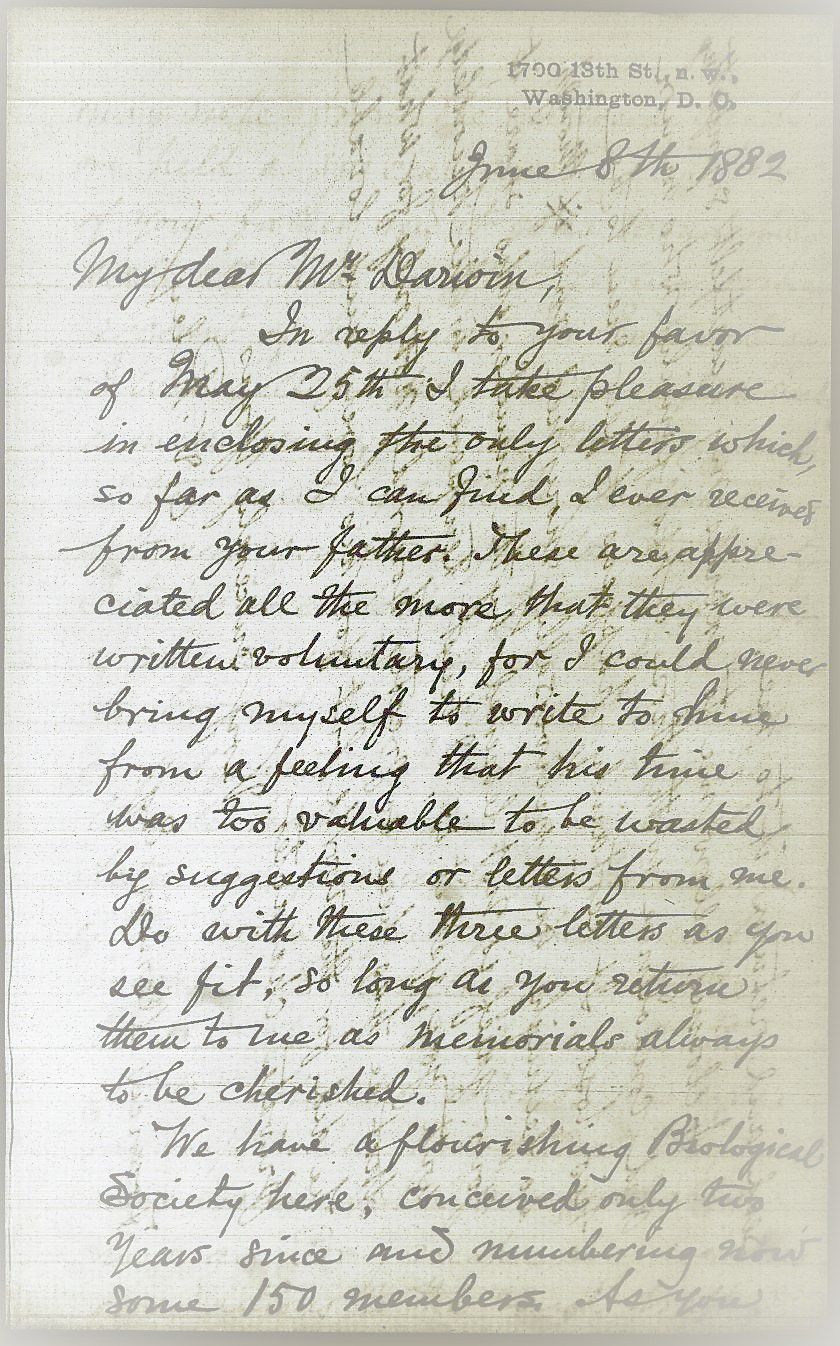 1700 13th St., n. w.,
Washington, D. C.
June 8th 1882
My dear Mr Darwin,
In reply to your favor
of May 25th I take pleasure
in enclosing the only letters which,
so far as I can find, I ever received
from your father. These are appre-
ciated all the more that they were
written voluntary, for I could never
bring myself to write to him
from a feeling that his time
was too valuable to be wasted
by suggestions or letters from me.
Do with these three letters as you
see fit, so long as you return
them to me as memorials always
to be cherished.
We have a flourishing Biological
Society here, conceived only two
years since and numbering now
some 150 members. As you